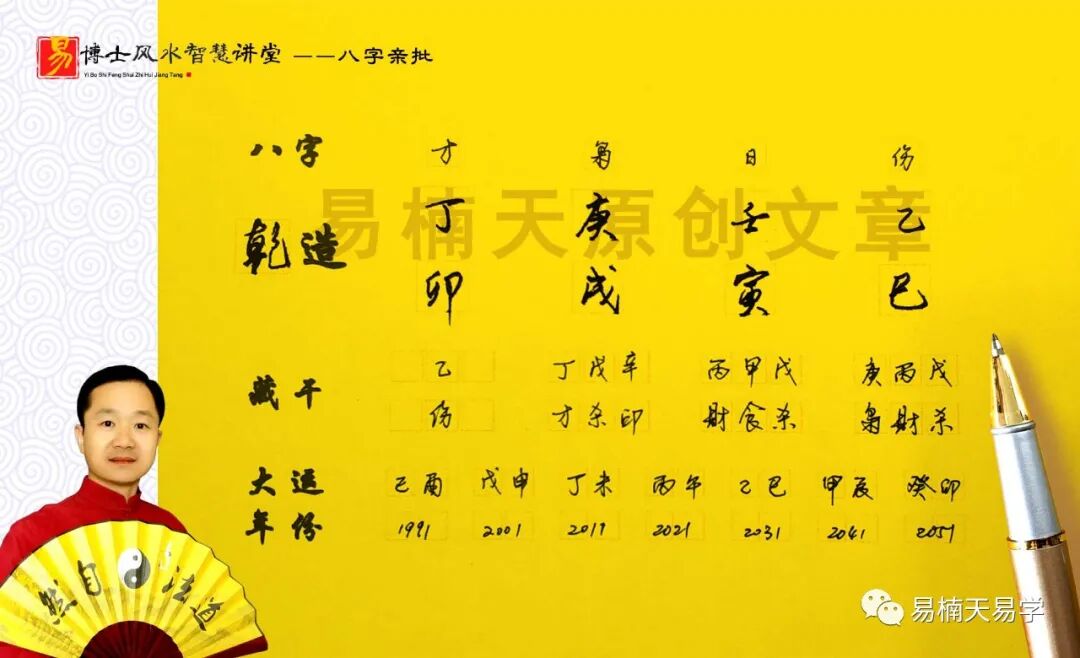 易 博士风水智慧讲堂 ——八字亲批
Yi Bo Shi Feng Shui Zhi Hui Jiang Tang
八字 才 枭 日 伤
易楠天原创文章
乾造 丁 庚 壬 乙
卯 戌 寅 巳
藏干 乙 丁戊辛 丙甲戊 庚丙戊
伤 才杀印 财食杀 枭财杀
大运 己酉 戊申 丁未 丙午 乙巳 甲辰 癸卯
年份 1991 2001 2011 2021 2031 2041 2051
然自法道
易楠天易学